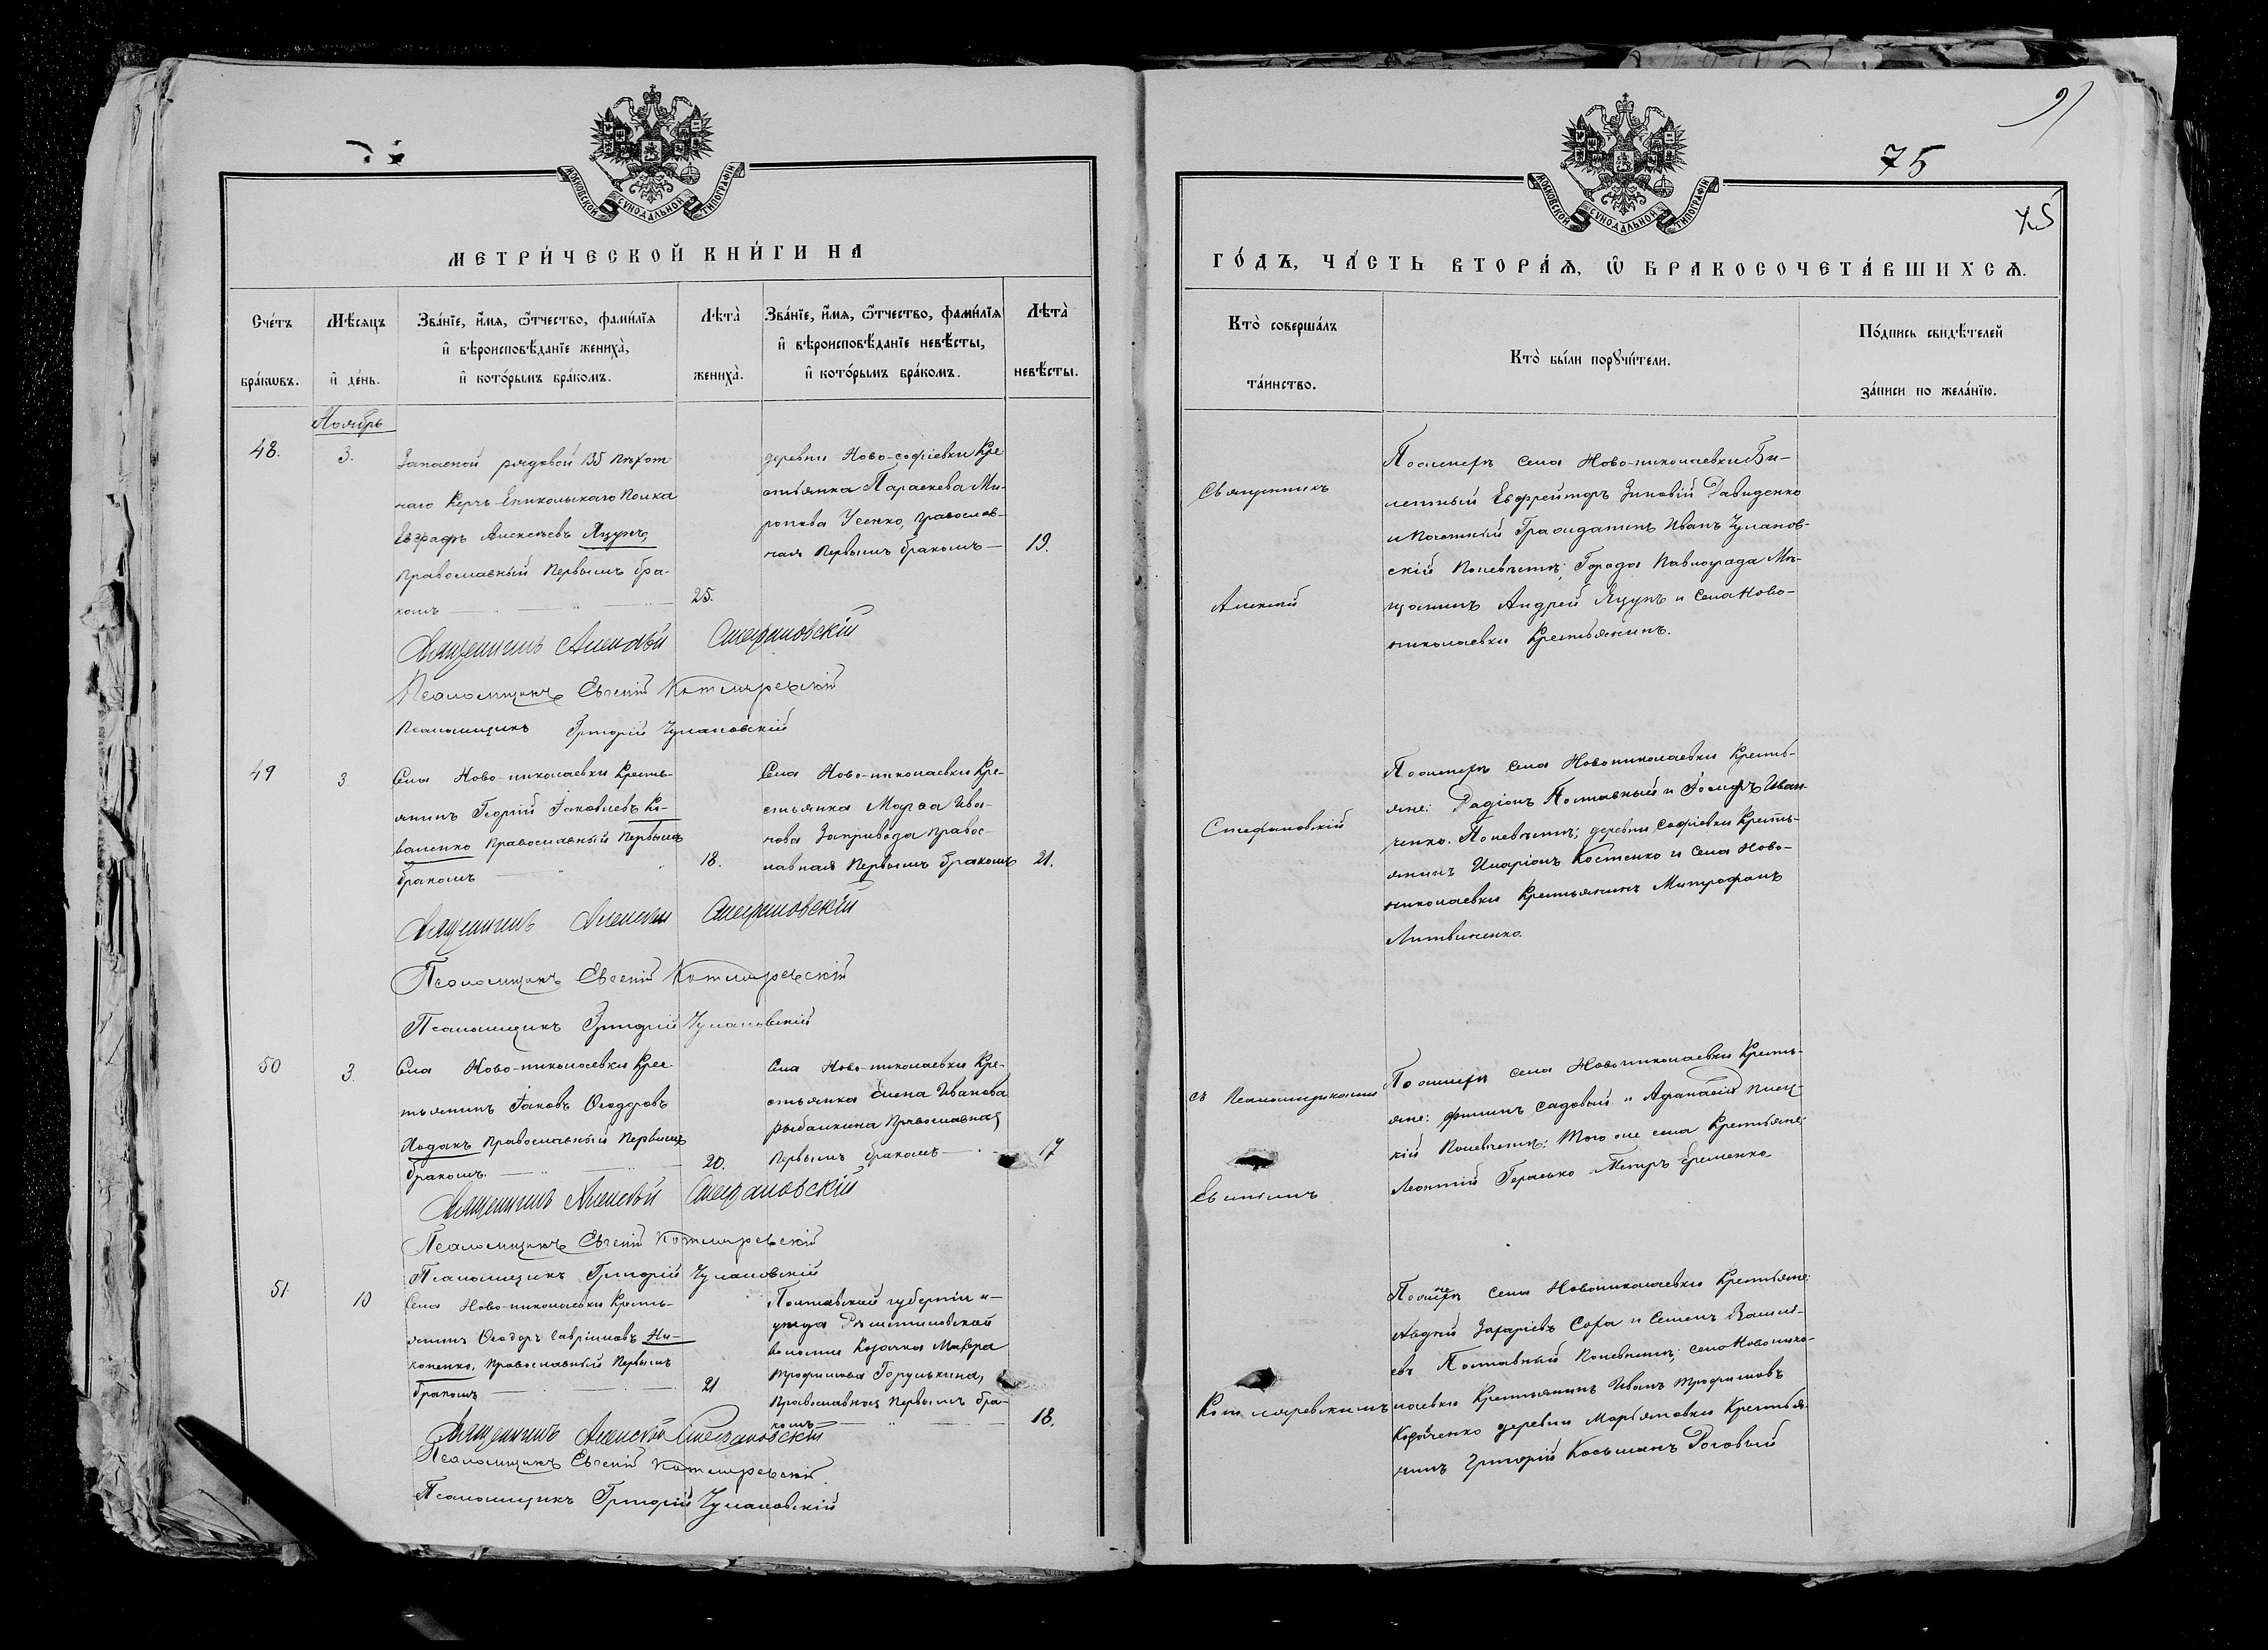 МОСКОВСКОЙ СѴНОДАЛЬНОЙ ТИПОГРАФІИ
МЕТРИ́ЧЕСКОЙ КНИ́ГИ НА
Сче́тъ бра́кѡвъ.
Мѣ́сяцъ и҆ де́нь.
Зва́нїе, и҆́мѧ, ѻ҆́тчество, фами́лїѧ
и҆ вѣроисповѣ́данїе жениха̀,
и҆ кото́рымъ бра́комъ.
Лѣта̀ жениха̀.
Зва́нїе, и҆́мѧ, ѻ҆́тчество, фами́лїѧ
и҆ вѣроисповѣ́данїе невѣ́сты,
и҆ кото́рымъ бра́комъ.
Лѣта̀ невѣ́сты.
Ноябрь
48.
3.
Запасной рядовой 135 пѣхот
наго Керчь-Еникольскаго Полка
Евграфъ Алексѣевъ Яцунъ,
православный первымъ бра-
комъ
25.
деревни Ново-софіевки Кре
стьянка Параскева Ми-
ронова Усенко, православ-
ная первымъ бракомъ
19.
Священникъ Алексѣй Стефановскій
Псаломщикъ Евгеній Котляревскій
Псаломщикъ Григорій Чулановскій
49
3
Села Ново-николаевки Кресть-
янинъ Георгій Іаковлевъ Ко-
валенко православный первымъ
бракомъ
18.
Села Ново-николаевки Кре-
стьянка Марѳа Ива-
нова Запривода правос-
лавная первымъ бракомъ
21.
Священникъ Алексѣй Стефановскій
Псаломщикъ Евгеній Котляревскій
Псаломщикъ Григорій Чулановскій
50
3.
Села Ново-николаевки Крес-
тьянинъ Іаковъ Ѳеодоровъ
Ходакъ православный первымъ
бракомъ.
20.
Села Ново-николаевки Кре-
стьянка Елена Иванова
Рыбалкина православная
первымъ бракомъ
17
Священникъ Алексѣй Стефановскій
Псаломщикъ Евгеній Котляревскій
Псаломщикъ Григорій Чулановскій
51.
10
Села Ново-николаевки Кресть-
янинъ Ѳеодоръ Гавріиловъ Ни-
коненко, православный первымъ
бракомъ
21
Полтавской губерніи и
уѣзда Рѣшетиловской
волости Козачка Мавра
Трофимова Горулькина,
православная первымъ бра-
комъ
18.
Священникъ Алексѣй Стефановскій
Псаломщикъ Евгеній Котляревскій
Псаломщикъ Григорій Чулановскій
МОСКОВСКОЙ СѴНОДАЛЬНОЙ ТИПОГРАФІИ
75
75
ГО́ДЪ, ЧА́СТЬ ВТОРА́Ѧ, Ѡ҆ БРАКОСОЧЕТА́ВШИХСѦ.
Кто̀ соверша́лъ
та́инство.
Кто̀ бы́ли порꙋчи́тели.
По́дпись свидѣ́телей
за́писи по жела́нїю.
Священникъ
Алексѣй
Стефановскій
съ Псаломщикомъ
Евгеніемъ
Котляревскимъ
По женихѣ села Ново-николаевки Би-
летный Ефрейторъ Зиновій Давиденко
и Почетный Гражданинъ Иванъ Чуланов-
скій По невѣстѣ; Города Павлограда Мѣ-
щанинъ Андрей Яцунъ и Села Ново-
николаевки Крестьянинъ.
По женихѣ села Новониколаевки Кресть-
яне: Радіонъ Полтавный и Іосифъ Иван-
ченко. По невѣстѣ; деревни Софіевки Кресть-
янинъ Иларіонъ Костенко и Села Ново-
николаевки Крестьянинъ Митрофанъ
Литвиненко.
По женихѣ села Новониколаевки Кресть-
яне: Филипъ Садовый и Афанасій
кій По невѣстѣ: Того же села Крестьяне:
Леонтій Герасько Петръ Ерёменко
По женихѣ села Новониколаевки Крестьяне:
Андрей Захаріевъ Сора и Семенъ Василі-
евъ Полтавный По невѣстѣ; село Новонико-
лаевки Крестьянинъ Иванъ Трофимовъ
деревни Марьяновки Крестья-
нинъ Григорій Косьминъ Роговый